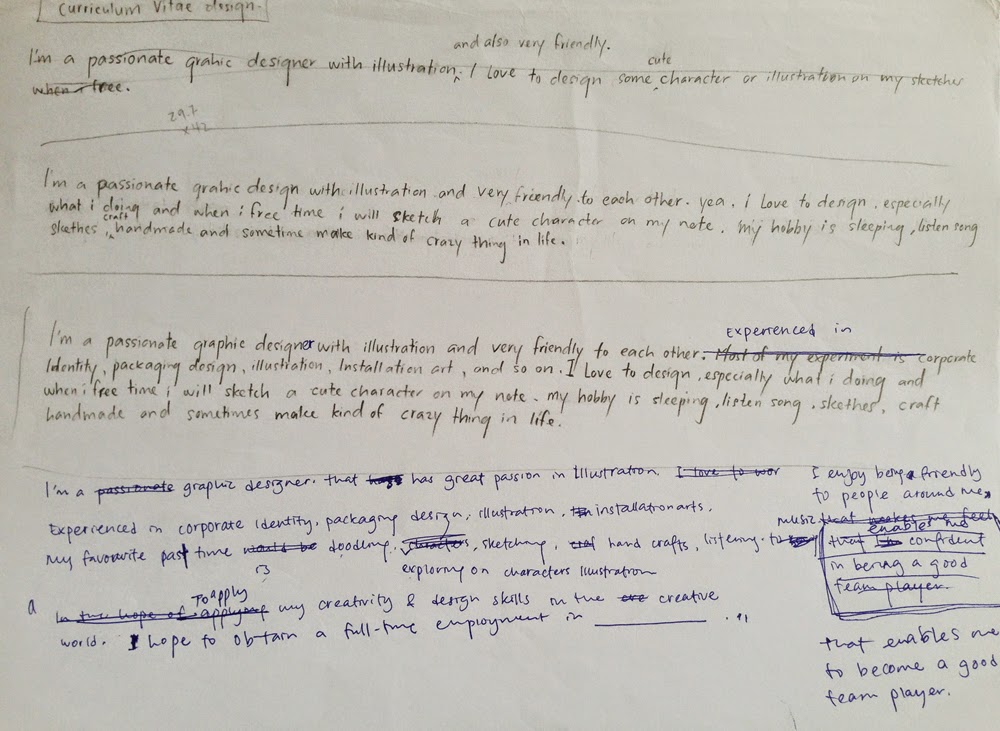 Curriculum Vitae design.
and also very friendly.
I'm a passionate grahic designer with illustration. I love to design some cute character or illustration on my sketches
when i free.
29.7
x 42
I'm a passionate grahic design with illustration and very friendly to each other. yea, i Love to design, especially
what i doing and when i free time i will sketch a cute character on my note. my hobby is sleeping, listen song
skethes, craft handmade and sometime make kind of crazy thing in life.
Experienced in
I'm a passionate graphic designer with illustration and very friendly to each other. Most of my experiment is corporate
Identity, packaging design, illustration, Installation art, and so on. I Love to design, especially what i doing and
when i free time i will sketch a cute character on my note. my hobby is sleeping, listen song, skethes, craft
handmade and sometimes make kind of crazy thing in life.
I'm a passionate graphic designer. that has great passion in Illustration. I love to wor
Experienced in corporate identity, packaging design, illustration, installation arts.
My favourite past time would be doodling, characters, sketching, hand crafts, listening to music
exploring on characters illustration
a In the hope of applying To apply my creativity & design skills in the creative
world. I hope to obtain a full-time employment in ________ .
I enjoy being friendly
to people around me,
that makes me feel
enables me
that confident
in being a good
team player.
that enables me
to become a good
team player.